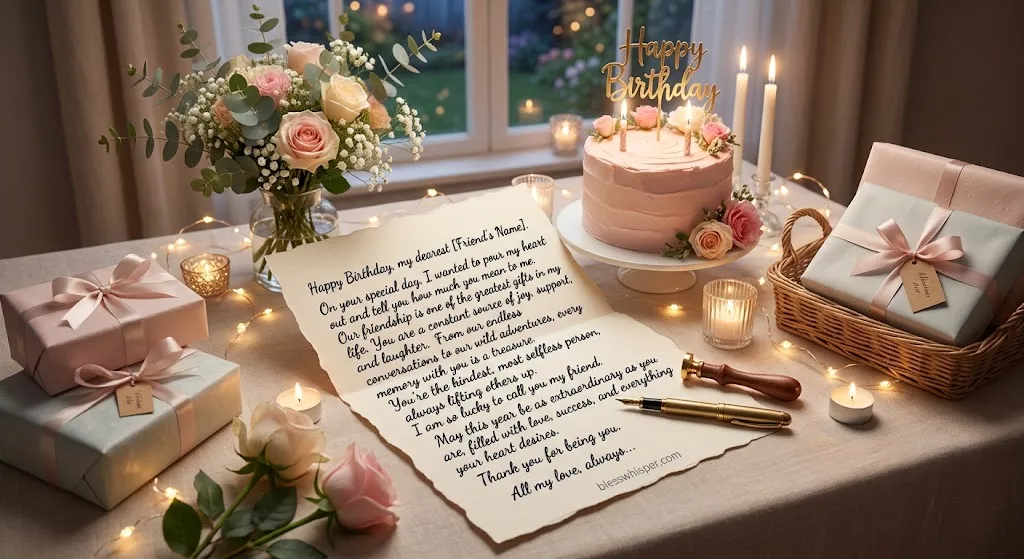 Happy
Birthday
Happy Birthday, my dearest [Friend's Name].
On your special day, I wanted to pour my heart
out and tell you how much you mean to me.
Our friendship is one of the greatest gifts in my
life. You are a constant source of joy, support,
and laughter. From our endless
conversations to our wild adventures, every
memory with you is a treasure.
You're the kindest, most selfless person,
always lifting others up.
I am so lucky to call you my friend.
May this year be as extraordinary as you
are, filled with love, success, and everything
your heart desires.
Thank you for being you.
All my love, always...
blesswhisper.com